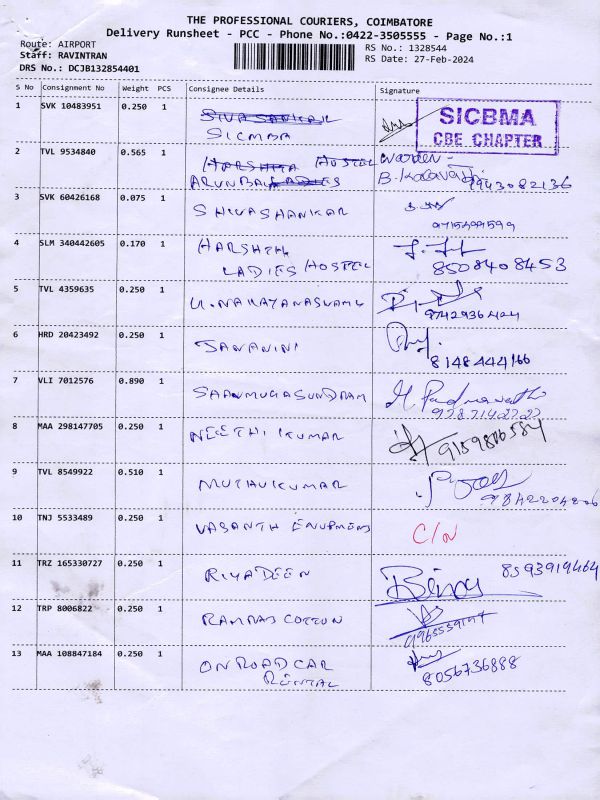 THE PROFESSIONAL COURIERS, COIMBATORE
Delivery Runsheet - PCC - Phone No.:0422-3505555 - Page No.:1
Route: AIRPORT
Staff: RAVINTRAN
DRS No.: DCJB132854401
RS No.: 1328544
RS Date: 27-Feb-2024
S No Consignment No Weight PCS Consignee Details Signature
1 SVK 10483951 0.250 1 SIVA SANKAR
SICMBA
SICBMA
CBE CHAPTER
2 TVL 9534840 0.565 1 HARSHITA HOSTEL warden -
ARUNBAL LADIES B. Kalavathi 9943082136
3 SVK 60426168 0.075 1 SHIVASHANKAR
9715499599
4 SLM 340442605 0.170 1 HARSHTH
LADIES HOSTEL 8508408453
5 TVL 4359635 0.250 1 U.NARAYANASWAMY
9742936424
6 HRD 20423492 0.250 1 JANANINI
8148444166
7 VLI 7012576 0.890 1 SHANMUGASUNDRAM M. Padmavathi
8 MAA 298147705 0.250 1 NEETHI KUMAR 9159876584
9 TVL 8549922 0.510 1 MUTHUKUMAR
9842204206
10 TNJ 5533489 0.250 1 VASANTH C/N
11 TRZ 165330727 0.250 1 RIYADEEN Binoy 8593919464
12 TRP 8006822 0.250 1 RAMRAJ COTTON
13 MAA 108847184 0.250 1 ONROAD CAR
RENTAL 8056736888